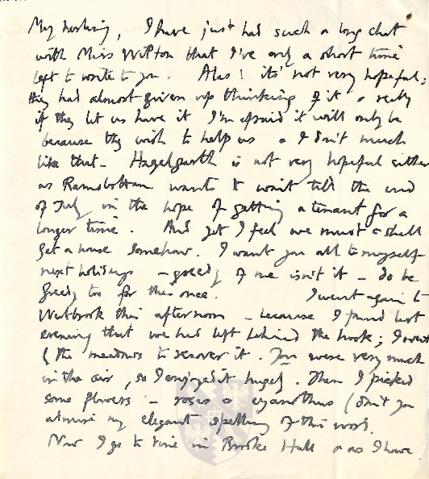 My darling, I have just had such a long chat
with Miss Wilton that I've only a short time
left to write to you. Alas! it's not very hopeful;
they had almost given up thinking of it & really
if they let us have it I'm afraid it will only be
because they wish to help us & I don't much
like that - Hazelgarth is not very hopeful either
as Ramsbottom wants to wait till the end
of July in the hope of getting a tenant for a
longer time. And yet I feel we must & shall
get a house somehow. I want you all to myself
next holidays - greedy of me isn't it - do be
greedy too for this once. I went again to
this afternoon - because I found last
evening that we had left behind the book; I went
the meadows to recover it. You were very much
in the air, so I enjoyed it hugely. Then I picked
some flowers - roses & cyanothus (don't you
admire my elegant spelling of this word.
Now I go to dine in Brooke Hall & as I have